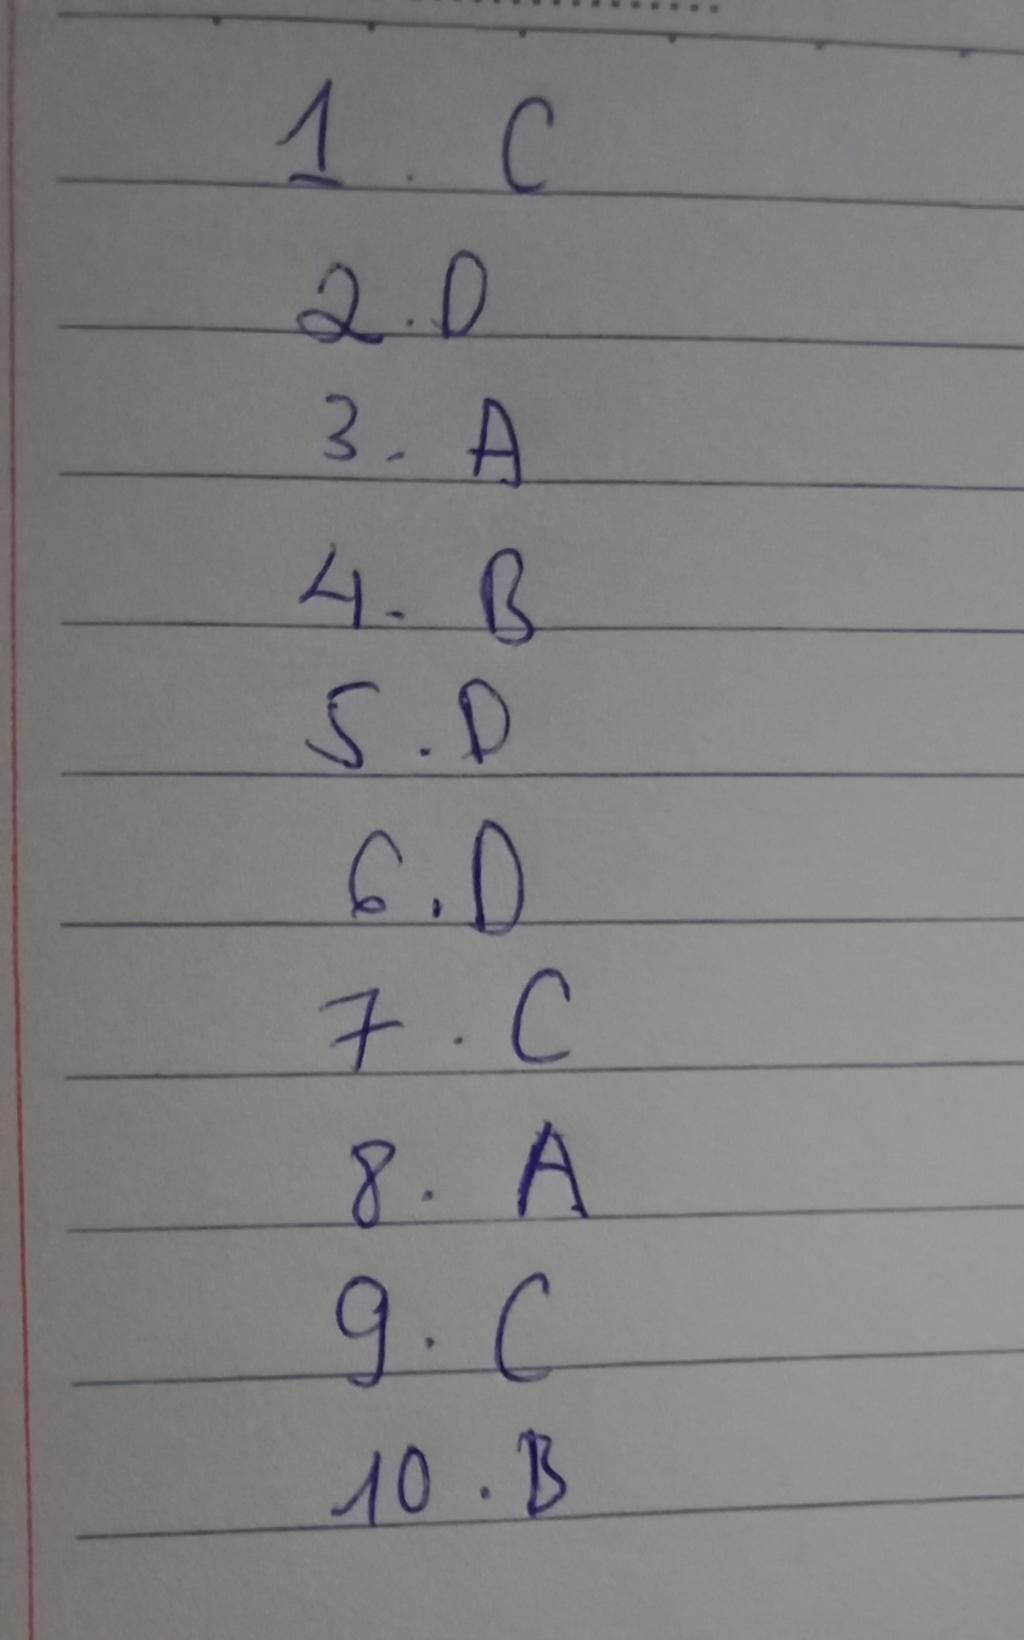 1. C
2. D
3. A
4. B
5. D
6. D
7. C
8. A
9. C
10. B